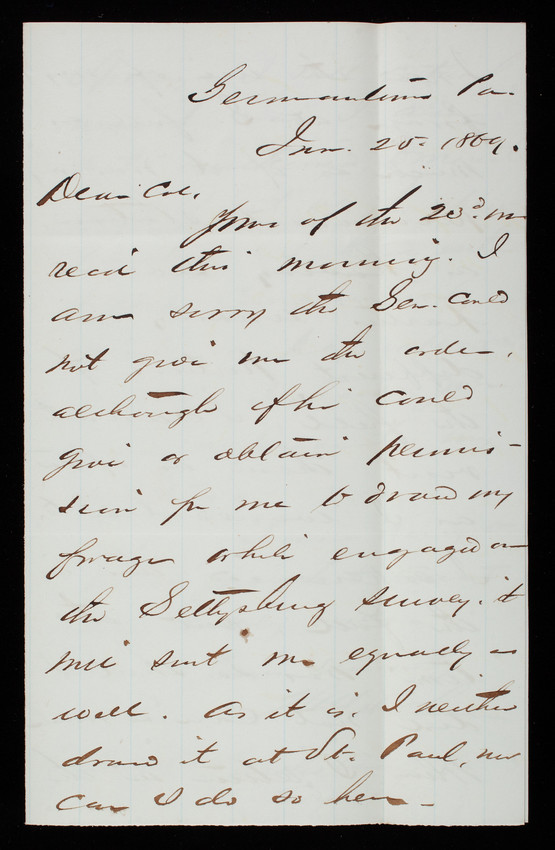 Germantown Pa.
Jan. 25. 1869.
Dear Col.
Yours of the 23d. was
rec'd this morning. I
am sorry the Gen. could
not give me the order,
although if he could
give or obtain permis-
sion for me to draw my
forage while engaged on
the Gettysburg survey. it
will suit me equally as
well. As it is, I neither
draw it at St. Paul, nor
can I do so here -